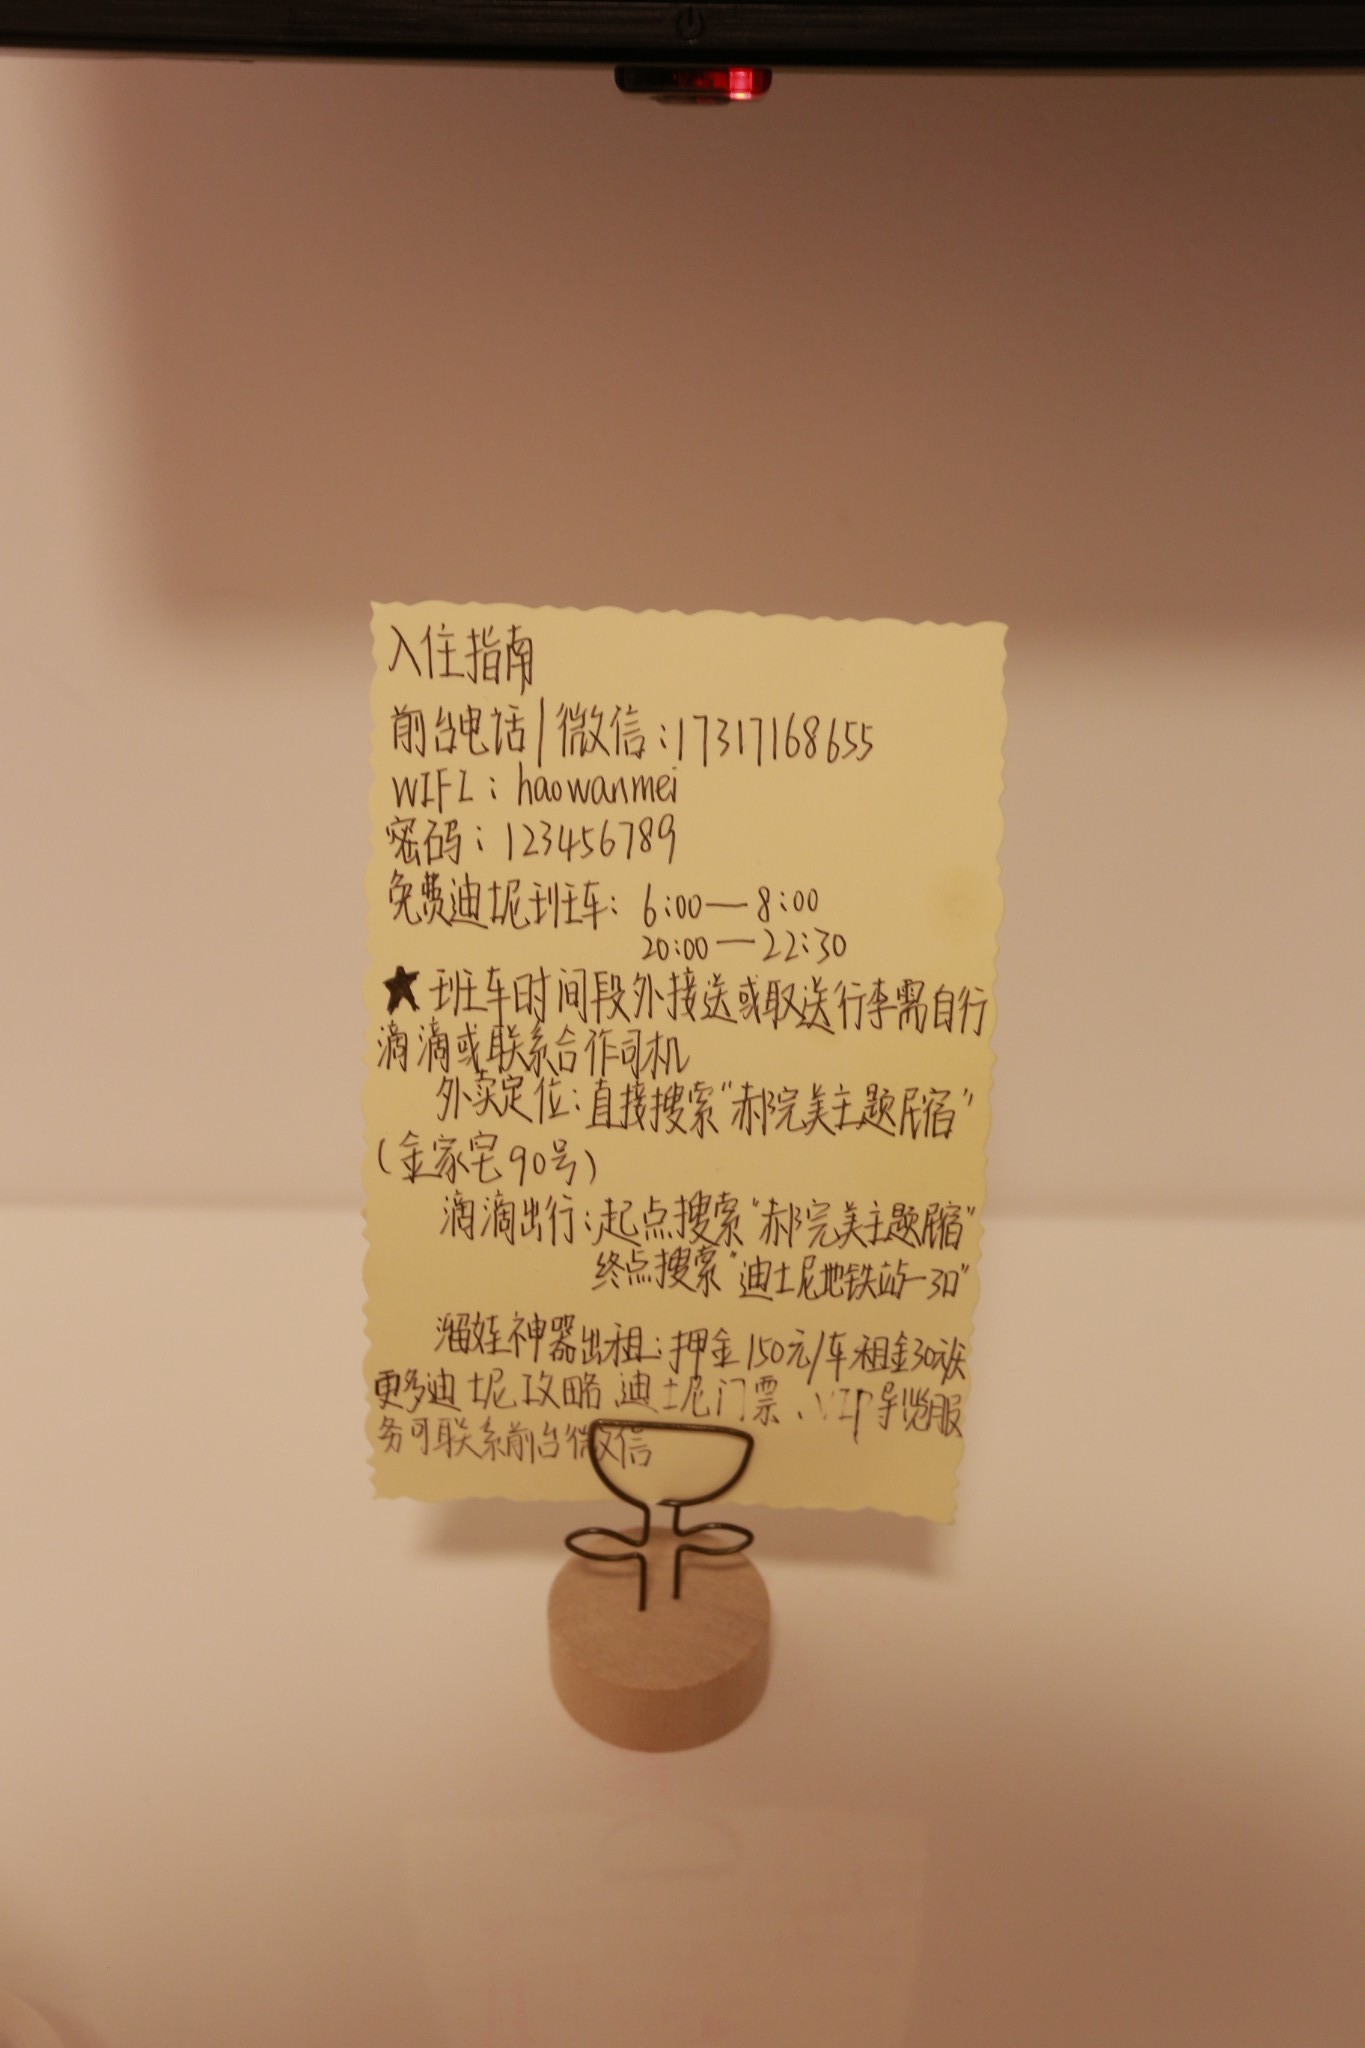 入住指南
前台电话/微信:17317168655
WIFI:haowanmei
密码:123456789
免费迪士尼班车:6:00—8:00
20:00—22:30
★班车时间段外接送或取送行李需自行
滴滴或联系合作司机
外卖定位:直接搜索“郝完美主题民宿”
(金家宅90号)
滴滴出行:起点搜索“郝完美主题民宿”
终点搜索“迪士尼地铁站-3口”
溜娃神器出租:押金150元/车租金30元/天
更多迪士尼攻略、迪士尼门票、VIP导览服
务可联系前台微信